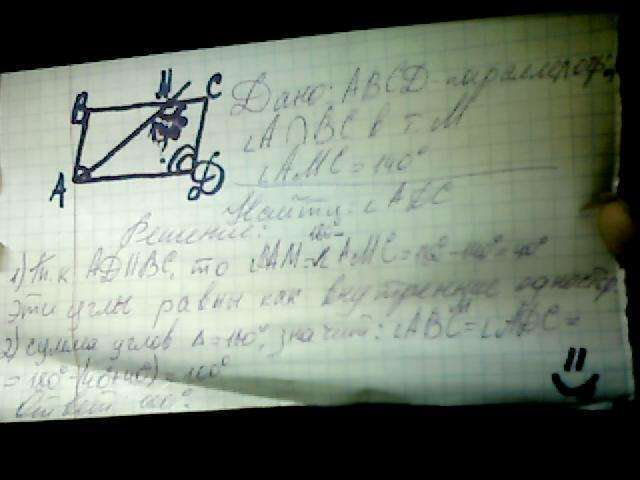 B M C
A D
Дано: ABCD-
∠A ∩ BC в т. M
∠AMC = 140°
Найти: ∠ADC
Решение:
1) т.к AD || BC, то = 180° - ∠AMC = 180° - 140° = 40°
Эти углы равны как внутренние одностор
2) сумма углов Δ = 180°, значит: ∠ABC = ∠ADC =
= 180° - (40° + 40°) = 100°
Ответ: 100°.